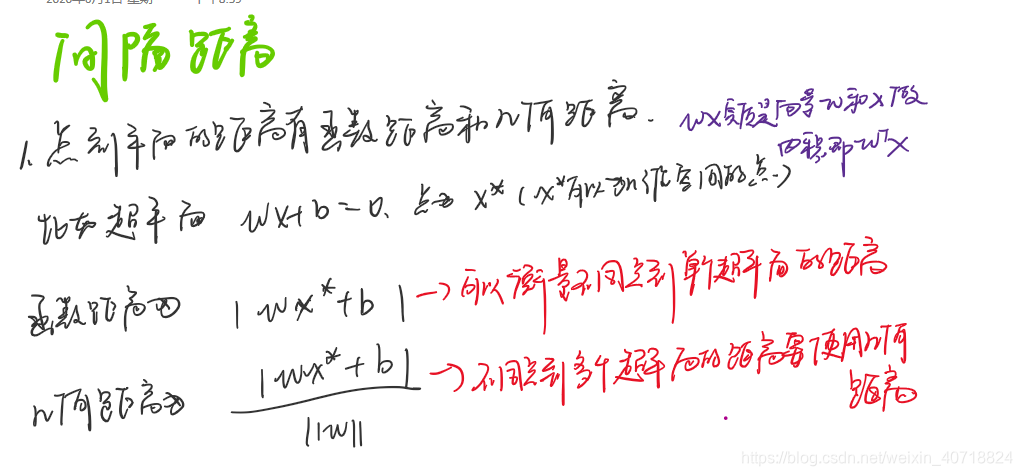 间隔距离
1. 点到平面的距离有函数距离和几何距离.
wx实质是向量w和x做
内积即wᵀx
比如超平面 wx+b=0、点为 x* (x*可以为n维空间的点.)
函数距离为 |wx*+b| → 可以衡量不同点到单个超平面的距离
几何距离为 |wx*+b| / ||w|| → 不同点到多个超平面的距离要使用几何
距离
https://blog.csdn.net/weixin_40718824